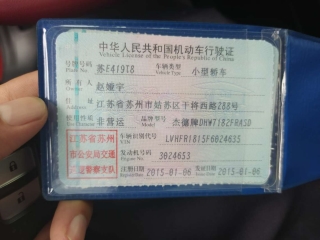 中华人民共和国机动车行驶证
Vehicle License of the People's Republic of China
号牌号码 苏E419T8 车辆类型 小型轿车
Plate No. Vehicle Type
所有人 赵媛宇
住址 江苏省苏州市姑苏区干将西路288号
非营运 品牌型号 杰德牌DHW7182FRASD
Model
江苏省苏州 车辆识别代号 LVHFR1815F6024635
VIN
市公安局交通 发动机号码 3024653
Engine No.
巡警察支队 注册日期 2015-01-06 发证日期 2015-01-06